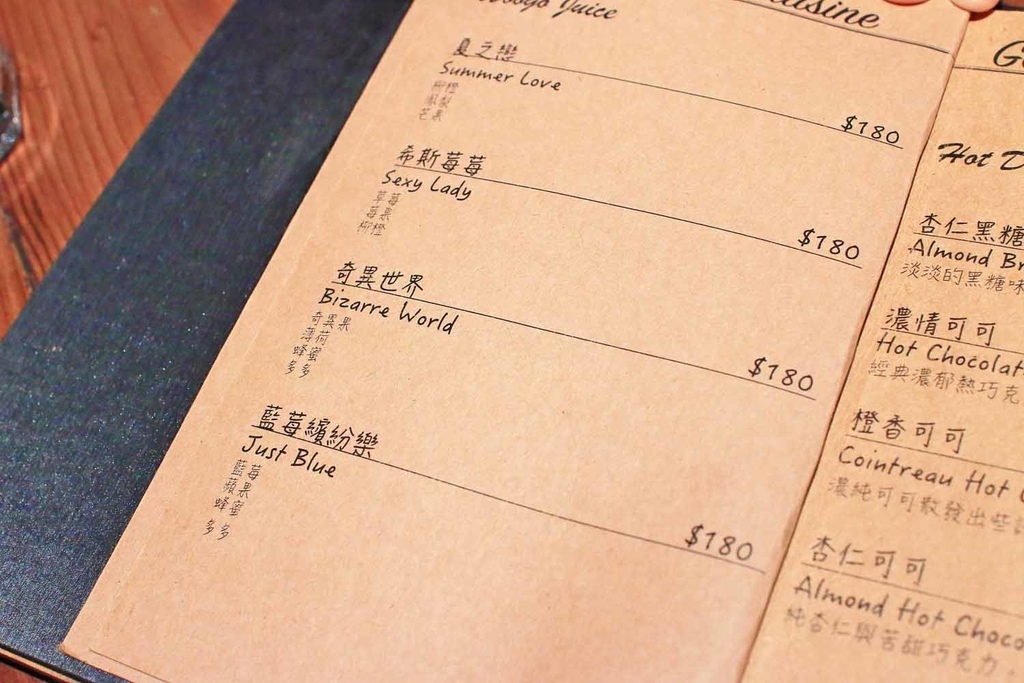 Juice
夏之戀
Summer Love
$180
柳橙
鳳梨
芒果
希斯莓莓
Sexy Lady
$180
草莓
莓果
柳橙
奇異世界
Bizarre World
$180
奇異果
薄荷
蜂蜜
多多
藍莓繽紛樂
Just Blue
$180
藍莓
蘋果
蜂蜜
多多
Hot D
杏仁黑糖
Almond Br
淡淡的黑糖味
濃情可可
Hot Chocolat
經典濃郁熱巧克
橙香可可
Cointreau Hot
濃純可可散發出些
杏仁可可
Almond Hot Choco
純杏仁與苦甜巧克力，